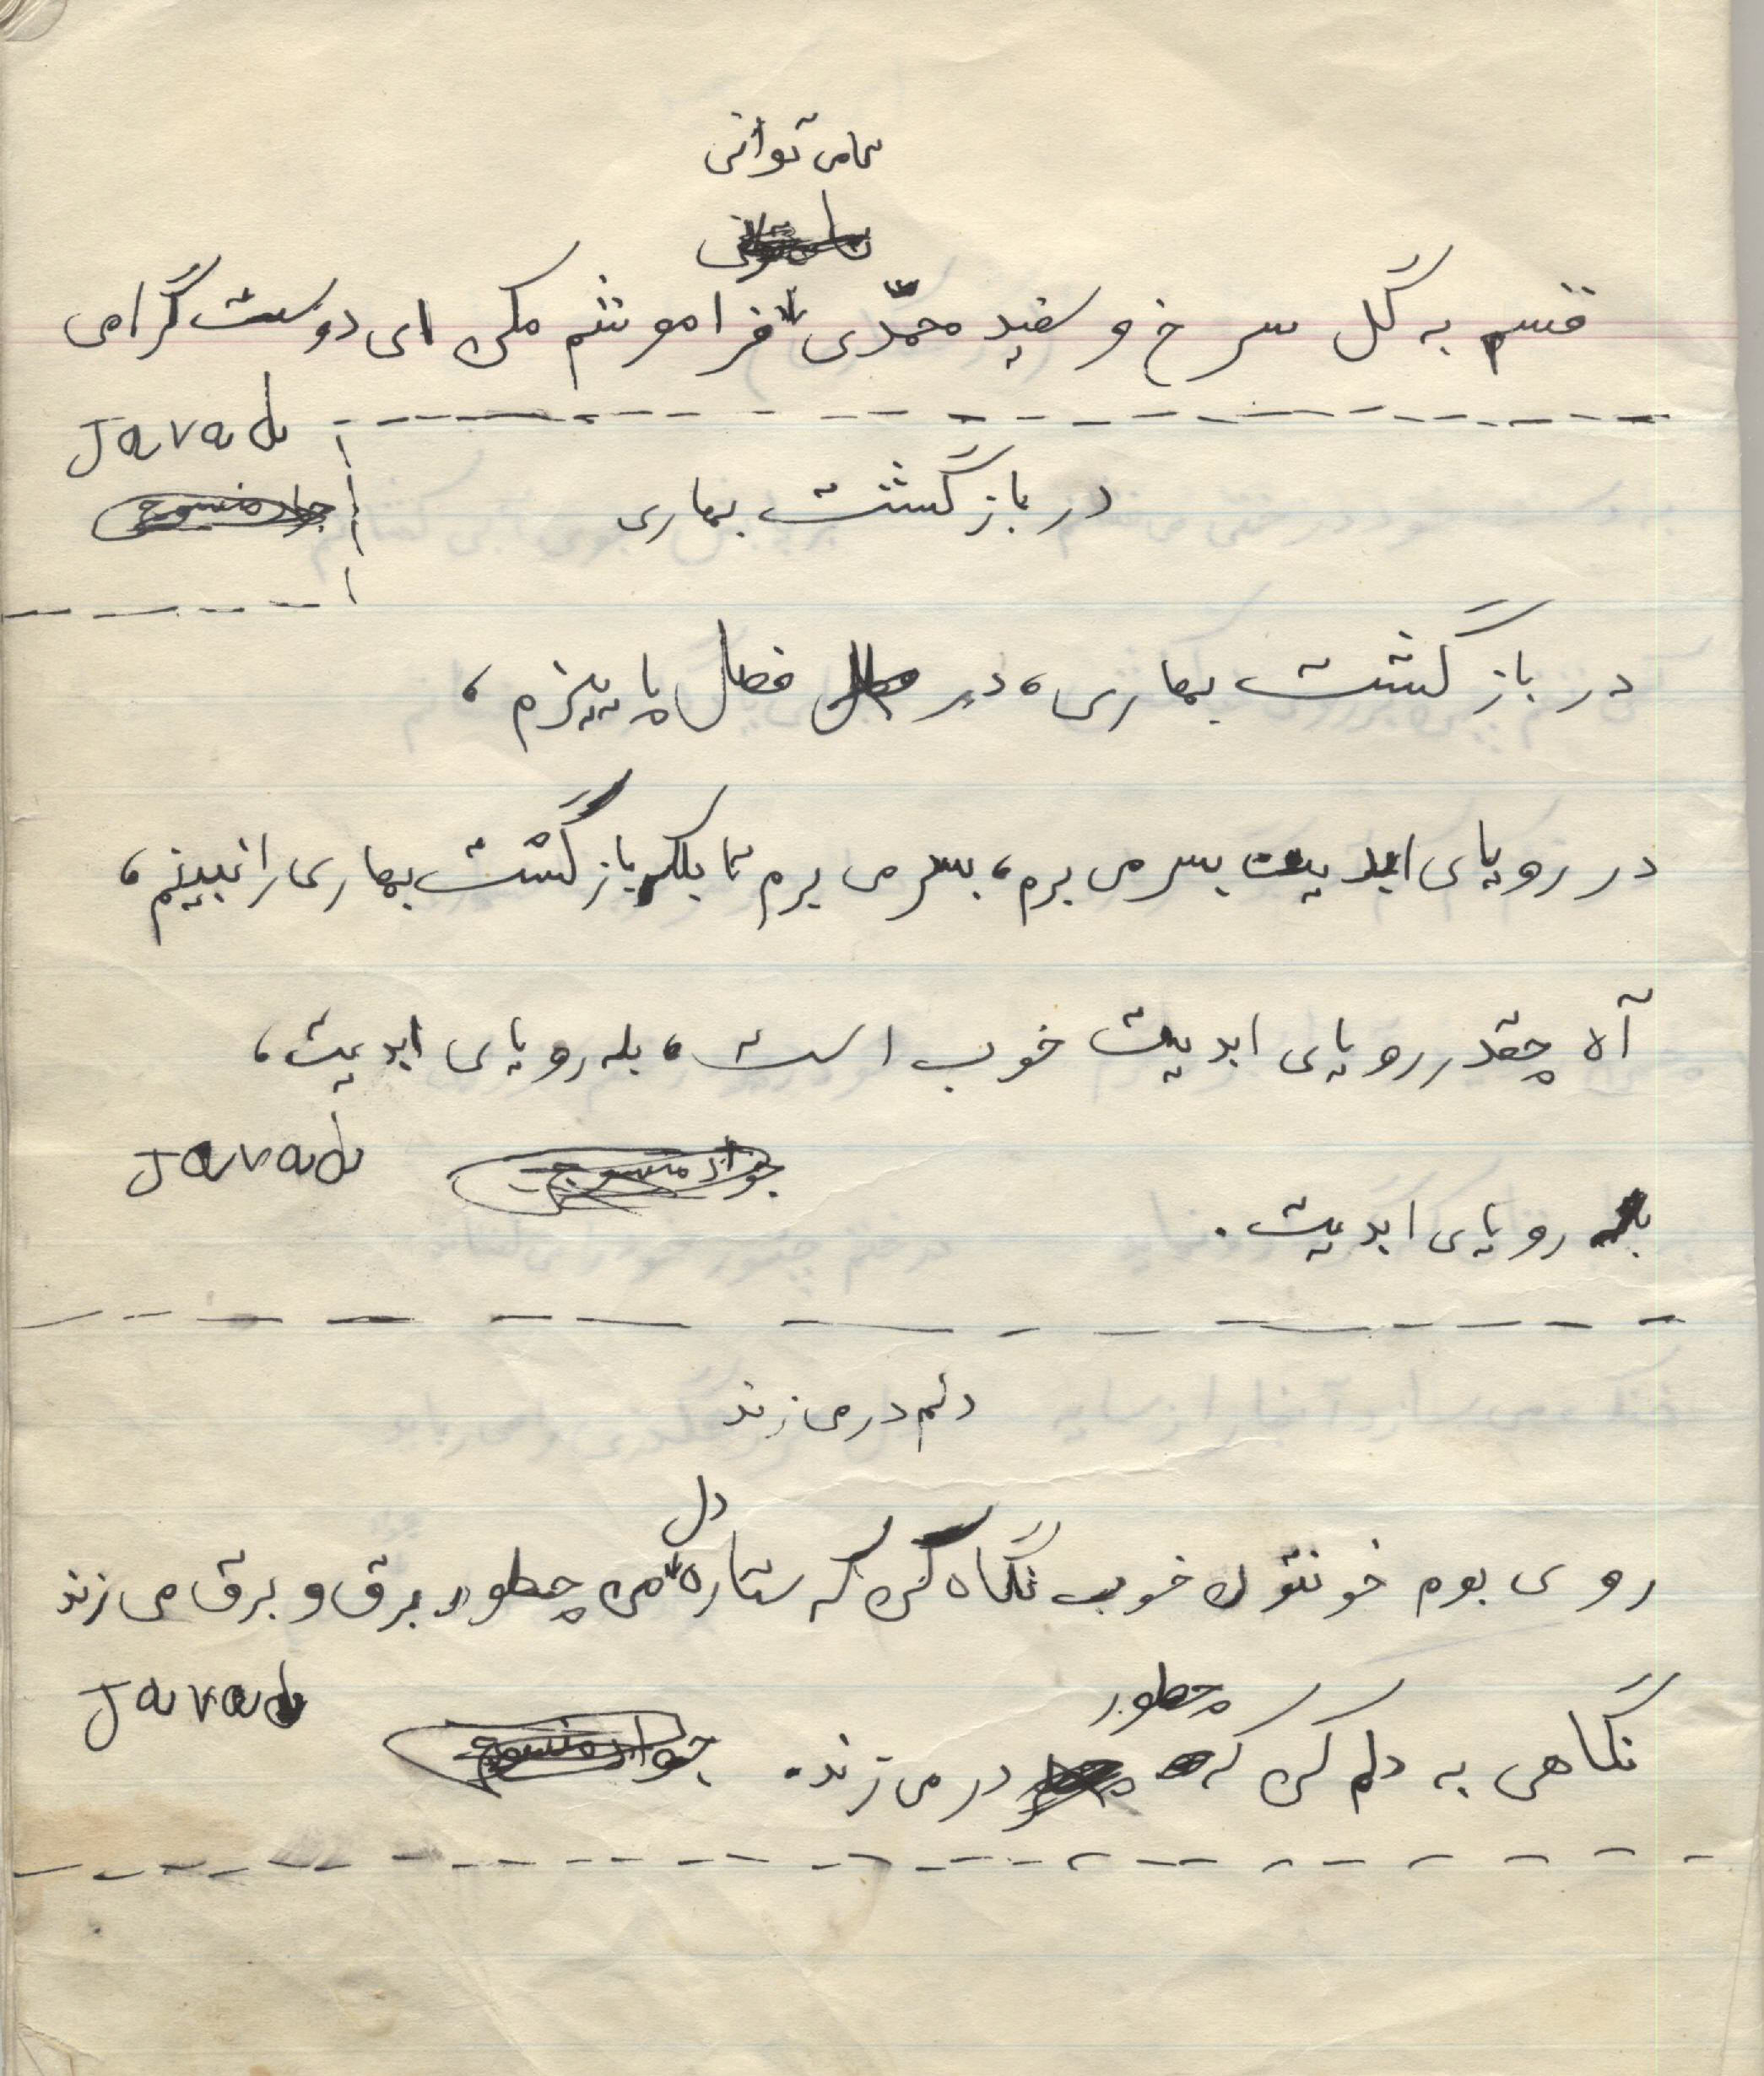 تا می توانی
قسم به گل سرخ و سفید محمّدی فراموشم مکن ای دوست گرامی
Javad
در بازگشت بهاری
در بازگشت بهاری، در فصل پاییزم،
در رویای ابدیت بسر می برم، بسر می برم تا بلکه بازگشت بهاری را نبینم،
آه چقدر رویای ابدیت خوب است، بله رویای ابدیت،
Javad
بله رویای ابدیت.
دلم در می زند
دل
روی بوم خونتون خوب نگاه کن که ستاره من چطور برق و برق می زند
Javad
چطور
نگاهی به دلم کن که در می زند.